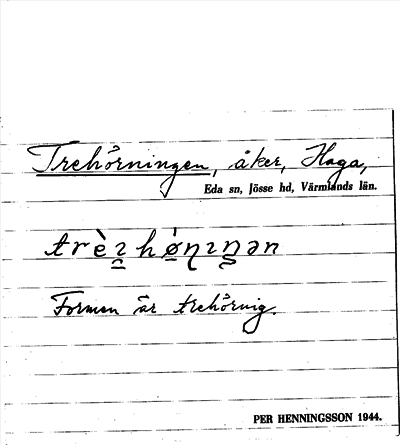 Trehörningen, åker, Haga,
Eda sn, Jösse hd, Värmlands län.
trèɪ hø̀nɪŋən
Formen är trehörnig.
PER HENNINGSSON 1944.